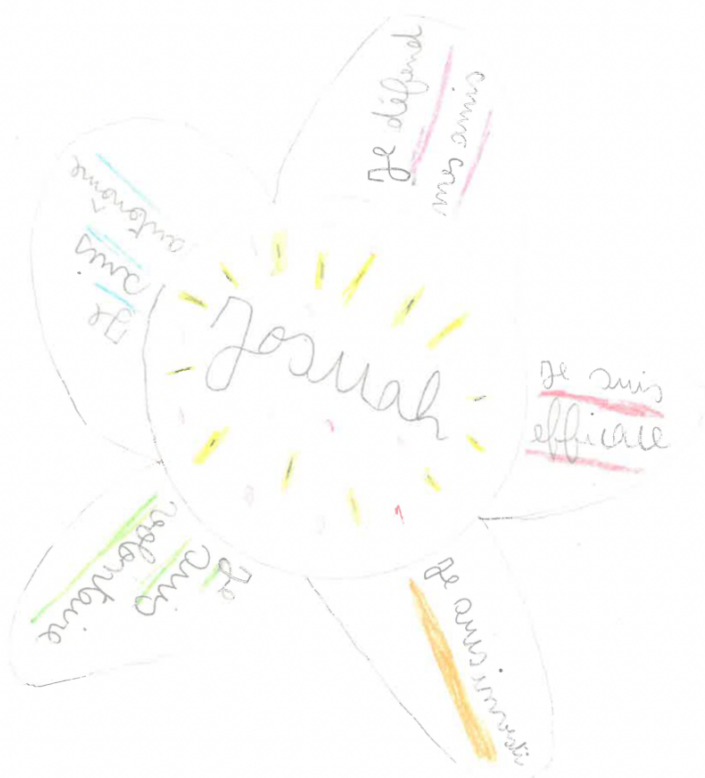 Josuah
Je défend
mes amis
Je suis
efficace
Je suis investi
Je suis
volontaire
Je
suis
autônome